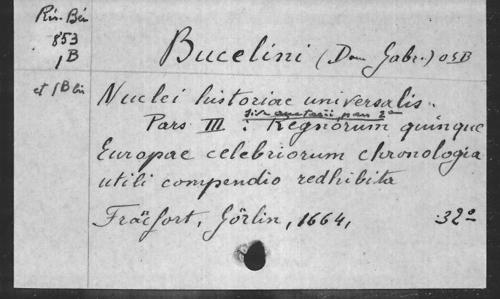 Rés. Bén
853
1 B
et 1 B bis
Bucelini (Dom Gabr.) OSB
Nuclei historiae universalis.
sive auctarii, pars 2ᵃ
Pars III : Regnorum quinque
Europae celebriorum chronologia
utili compendio redhibita
Fräcfort, Görlin, 1664, 32º